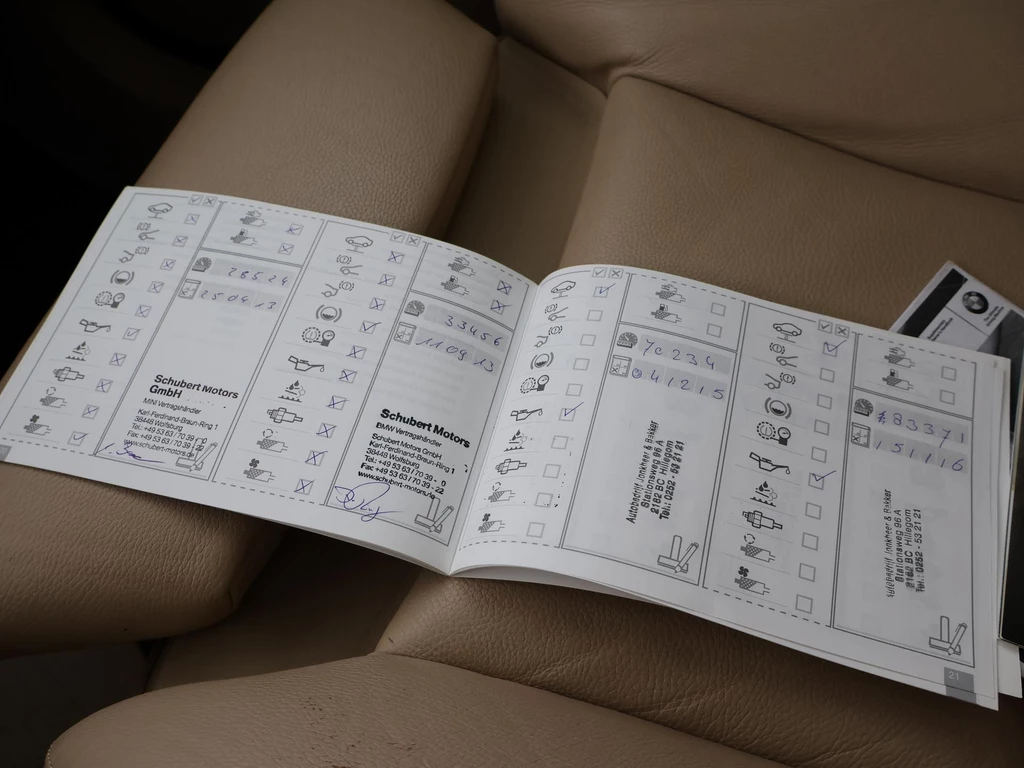 28524
250413
Schubert Motors
GmbH
MINI Vertragshändler
Karl-Ferdinand-Braun-Ring 1
38448 Wolfsburg
Tel.: +49 53 63 / 70 39 - 0
Fax: +49 53 63 / 70 39 - 22
www.schubert-motors.de
33456
110913
Schubert Motors
BMW Vertragshändler
Schubert Motors GmbH
Karl-Ferdinand-Braun-Ring 1
38448 Wolfsburg
Tel.: +49 53 63 / 70 39 - 0
Fax +49 53 63 / 70 39 - 22
www.schubert-motors.de
70234
041215
Autobedrijf Jonkheer & Bakker
Stationsweg 96 A
2182 BC Hillegom
Tel.: 0252 - 53 21 21
83371
151116
Autobedrijf Jonkheer & Bakker
Stationsweg 96 A
2182 BC Hillegom
Tel.: 0252 - 53 21 21
21